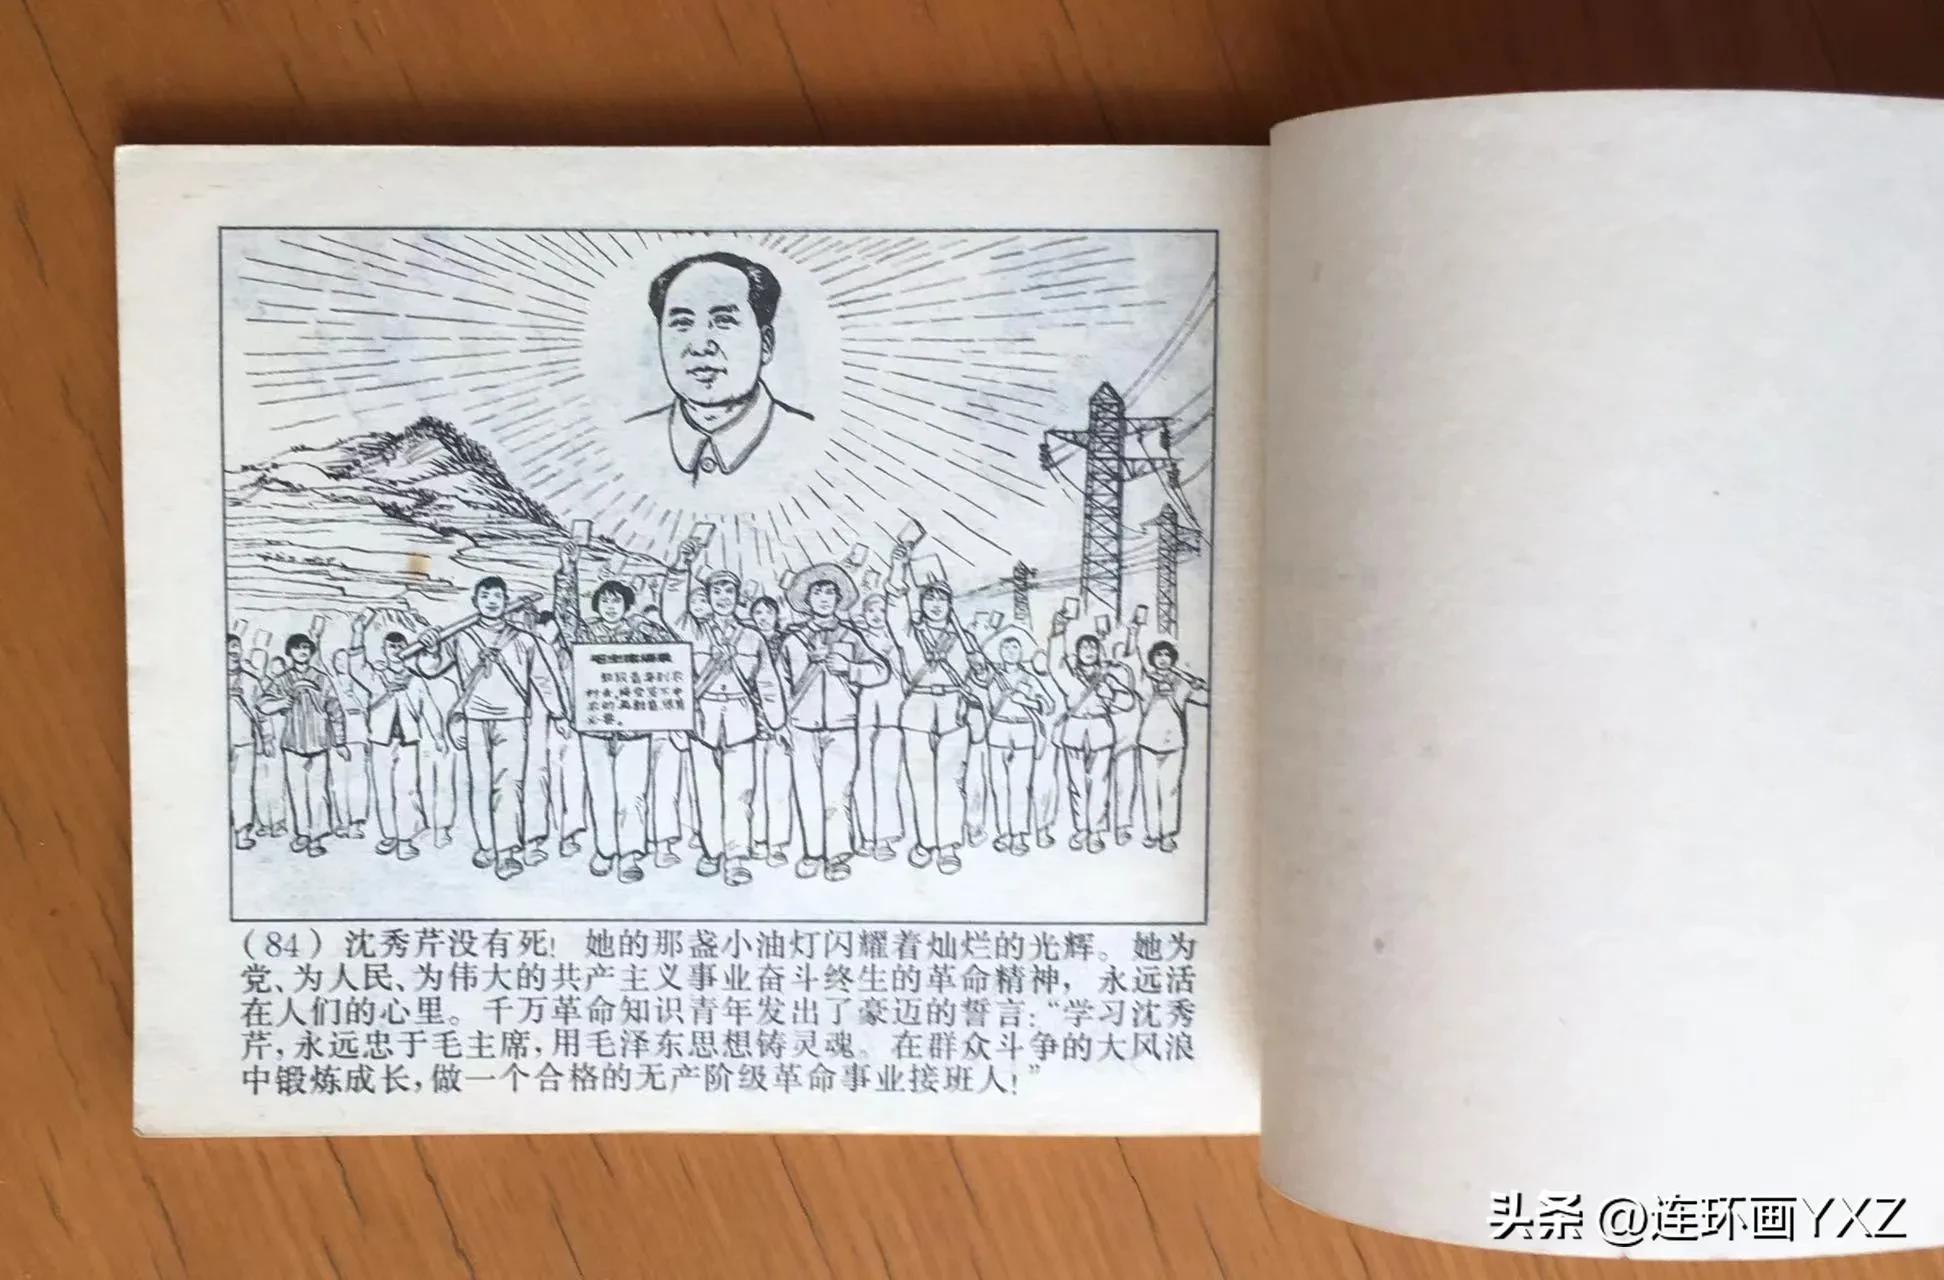 毛主席语录
知识青年到农
村去，接受贫下中
农的再教育，很有
必要。
（84）沈秀芹没有死！她的那盏小油灯闪耀着灿烂的光辉。她为
党、为人民、为伟大的共产主义事业奋斗终生的革命精神，永远活
在人们的心里。千万革命知识青年发出了豪迈的誓言：“学习沈秀
芹，永远忠于毛主席，用毛泽东思想铸灵魂。在群众斗争的大风浪
中锻炼成长，做一个合格的无产阶级革命事业接班人！”
头条 @连环画YXZ